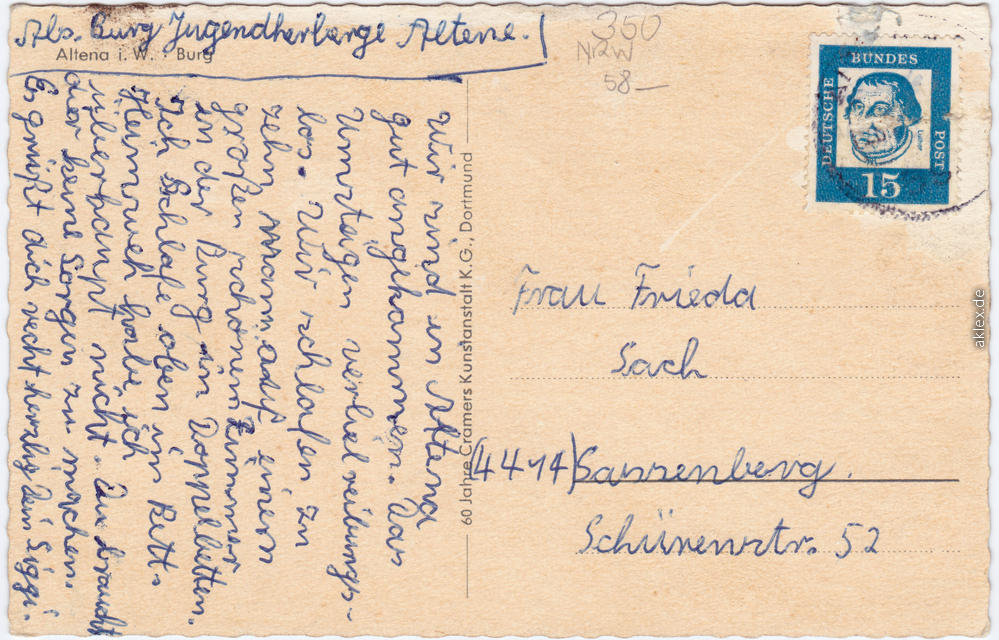 Abs. Burg Jugendherberge Altena.
Altena i. W. · Burg
Wir sind in Altena
gut angekommen. Das
Umsteigen verlief reibungs-
los. Wir schlafen zu
zehn Mann auf einem
großen schönem Zimmer
in der Burg in Doppelbetten.
Ich Schlafe oben im Bett.
Heimweh habe ich
überhaupt nicht. Du brauchst
dier keine Sorgen zu machen.
Es grüßt dich recht herzlig Dein Siggi.
60 Jahre Cramers Kunstanstalt K.G., Dortmund
350
NRW
58-
DEUTSCHE
BUNDES
POST
Luther
15
Frau Frieda
Sach
(4414) Sassenberg.
Schürenstr. 52
aklex.de